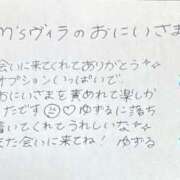 M'sヴィラのおにいさま
会いに来てくれてありがとう✨
オプションいっぱいで、
おにいさまを責めれて楽しか
たです☺♡ ゆずるに落ち
着いてくれてうれしいな☆
また会いに来てね! ゆずる